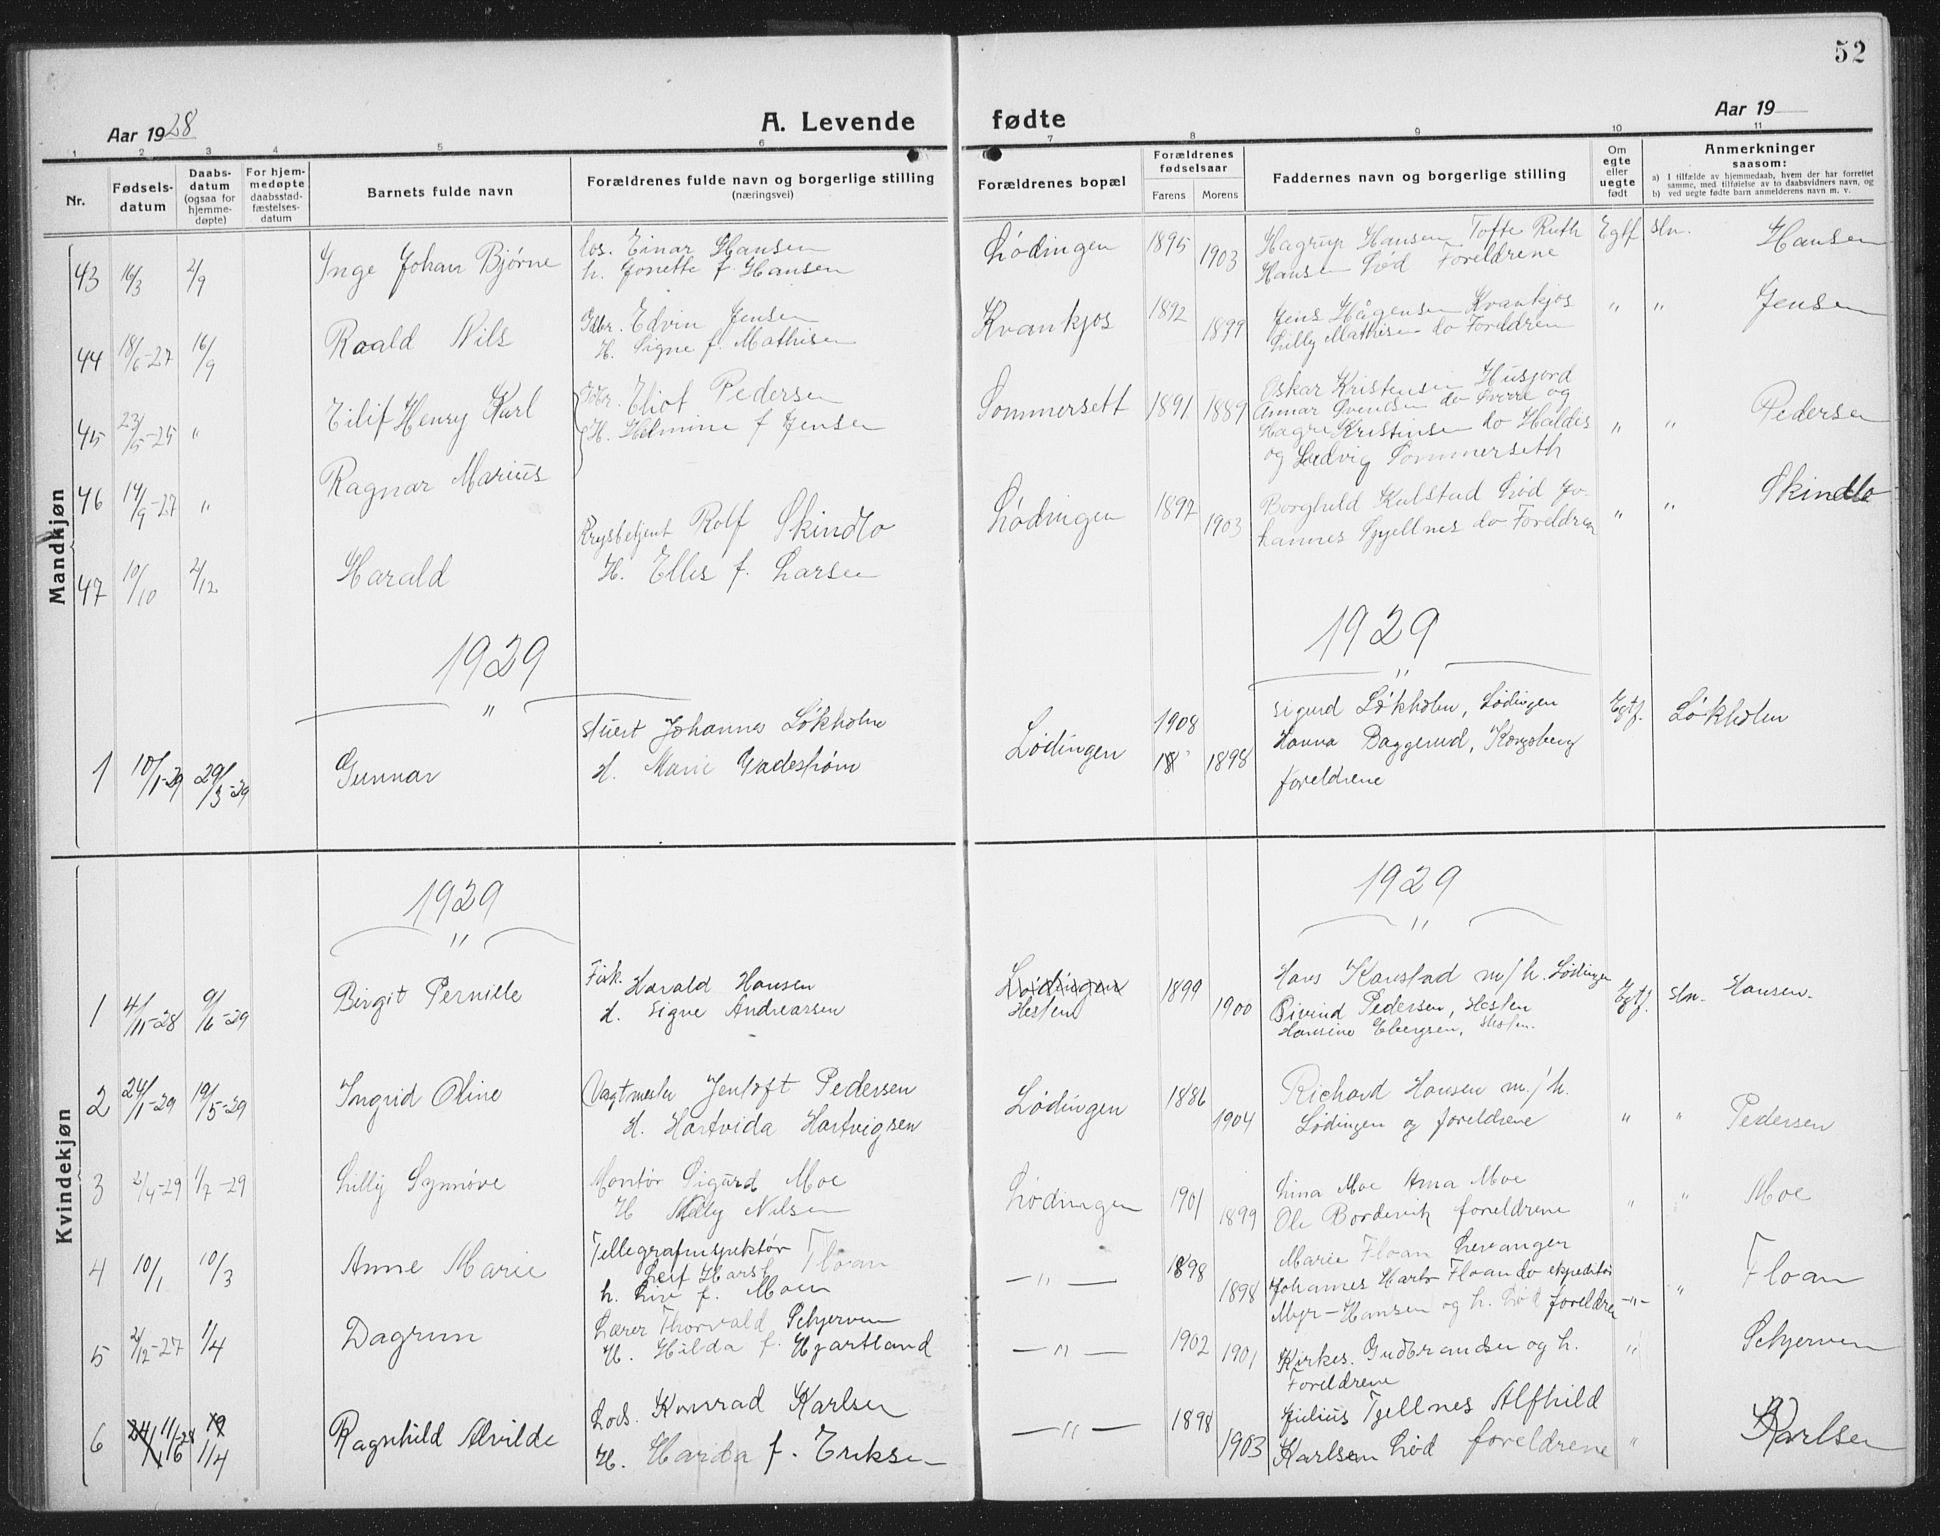 52
Aar 1928 A. Levende fødte Aar 19
1 2 3 4 5 6 7 8 9 10 11
Nr. Fødselsdatum Daabsdatum (ogsaa for hjemmedøpte) For hjemmedøpte daabsstadfæstelsesdatum Barnets fulde navn Forældrenes fulde navn og borgerlige stilling (næringsvei) Forældrenes bopæl Forældrenes fødselsaar Farens Morens Faddernes navn og borgerlige stilling Om egte eller uegte født Anmerkninger saasom:
a) I tilfælde av hjemmedaab, hvem der har forrettet samme, med tilføielse av to daabsvidners navn, og
b) ved uegte født barn anmelderens navn m. v.
Mandkjøn
43 16/3 2/9 Inge Johan Bjørne Los. Einar Hansen
h. Jonette f. Hansen Lødingen 1895 1903 Hagrup Hansen Tofte Ruth
Hansen Lød Foreldrene Egtf Hansen
44 18/6-27 16/9 Roald Nils Gdbr. Edvin Jensen
H. Signe f. Mathisen Kvankjos 1892 1899 Jens Hågensen Kvankjos
Lilly Mathisen do Foreldren " " Jensen
45 23/5-25 " Eilif Henry Karl Gdbr. Eliot Pedersen
H. Helmine f Jensen Sommersett 1891 1889 Oskar Kristensen Husjord
Annar Svendsen do Sverre og
Kristensen do Haldis
og Ludvig Sommerseth " " Pedersen
46 14/9-27 " Ragnar Marius
47 10/10 2/12 Harald Rolf Skindlo
H. Elles f. Larsen Lødingen 1897 1903 Borghild Kulstad Lød Jo-
hannes do Foreldren " " Skindlo
1929 1929
" "
1 10/1-29 29/3-29 Gunnar Stuert Johannes Løkholm
H. Marie Gadestrøm Lødingen 1908 1898 Sigurd Løkholm, Lødingen
Hanna Baggerud, Kongsberg
foreldrene Egtf. Løkholm
Kvindekjøn
1929 1929
" "
1 4/11-28 9/6-29 Birgit Pernille Fisk. Harald Hansen
H. Signe Andreassen Lødingen
Hesten 1899 1900 Hans Kanstad m/h. Lødingen
Eivind Pedersen, Hesten
Hansine Hesten. Egtf. Hansen.
2 24/1-29 19/5-29 Ingrid Oline Vagtmester Jentoft Pedersen
H. Hartvida Hartvigsen Lødingen 1886 1904 Richard Hansen m/h.
Lødingen og foreldrene " " Pedersen
3 2/4-29 1/7-29 Lilly Synnøve Montør Sigurd Moe
H Nelly Nilsen Lødingen 1901 1899 Lina Moe Anna Moe
Ole Bordevik foreldrene " " Moe
4 10/1 10/3 Anne Marie Tellegrafinspektør Floan
Leif Harst
h. Liv f. Moen — " — 1898 1898 Marie Floan Levanger
Johannes Floan do ekspeditør
Myr-Hansen og h. Lød foreldren -"- " Floan
5 2/12-27 1/4 Dagrun Lærer Thorvald Schjerven
H. Hilda f. Hjartland — " — 1902 1901 Kirkes. Gudbrandsen og h.
Foreldrene " Schjerven
6 11/6-28 1/4 Ragnhild Alvilde Lods. Konrad Karlsen
H. Harda f. Eriksen — " — 1898 1903 Julius Tjellnes Alfhild
Karlsen Lød foreldrene " Karlsen